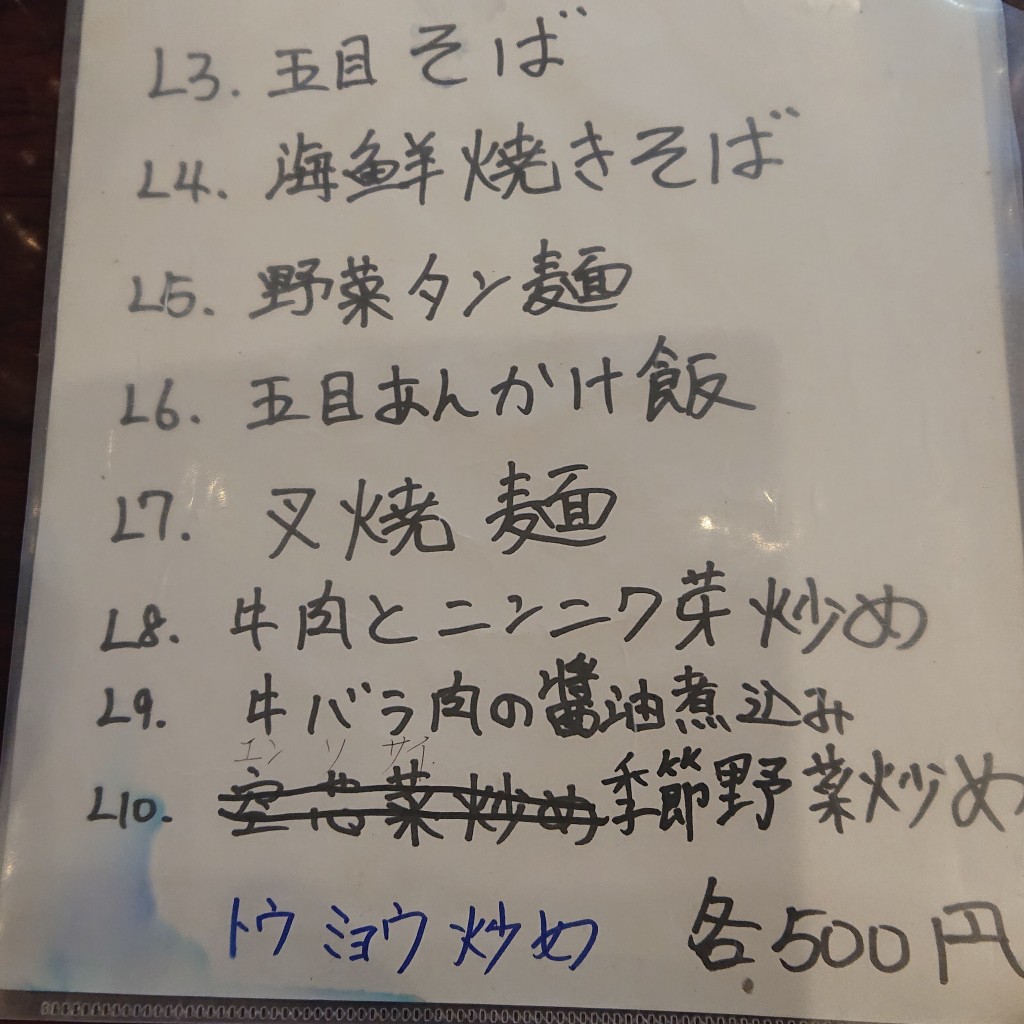 L3. 五目そば
L4. 海鮮焼きそば
L5. 野菜タン麺
L6. 五目あんかけ飯
L7. 叉焼麺
L8. 牛肉とニンニク芽炒め
L9. 牛バラ肉の醤油煮込み
エンソサイ
L10. 空芯菜炒め 季節野菜炒め
トウミョウ炒め 各500円